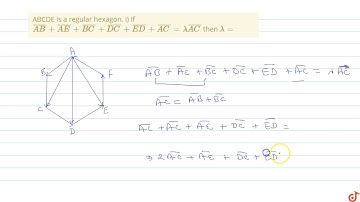 ABCDE is a regular hexagon. i) If
AB + AE + BC + DC + ED + AC = λAC then λ =
A
B
F
C
E
D
AB + AE + BC + DC + ED + AC = λ AC
AC = AB + BC
AC + AC + AE + DC + ED =
⇒ 2 AC + AE + DC + ED